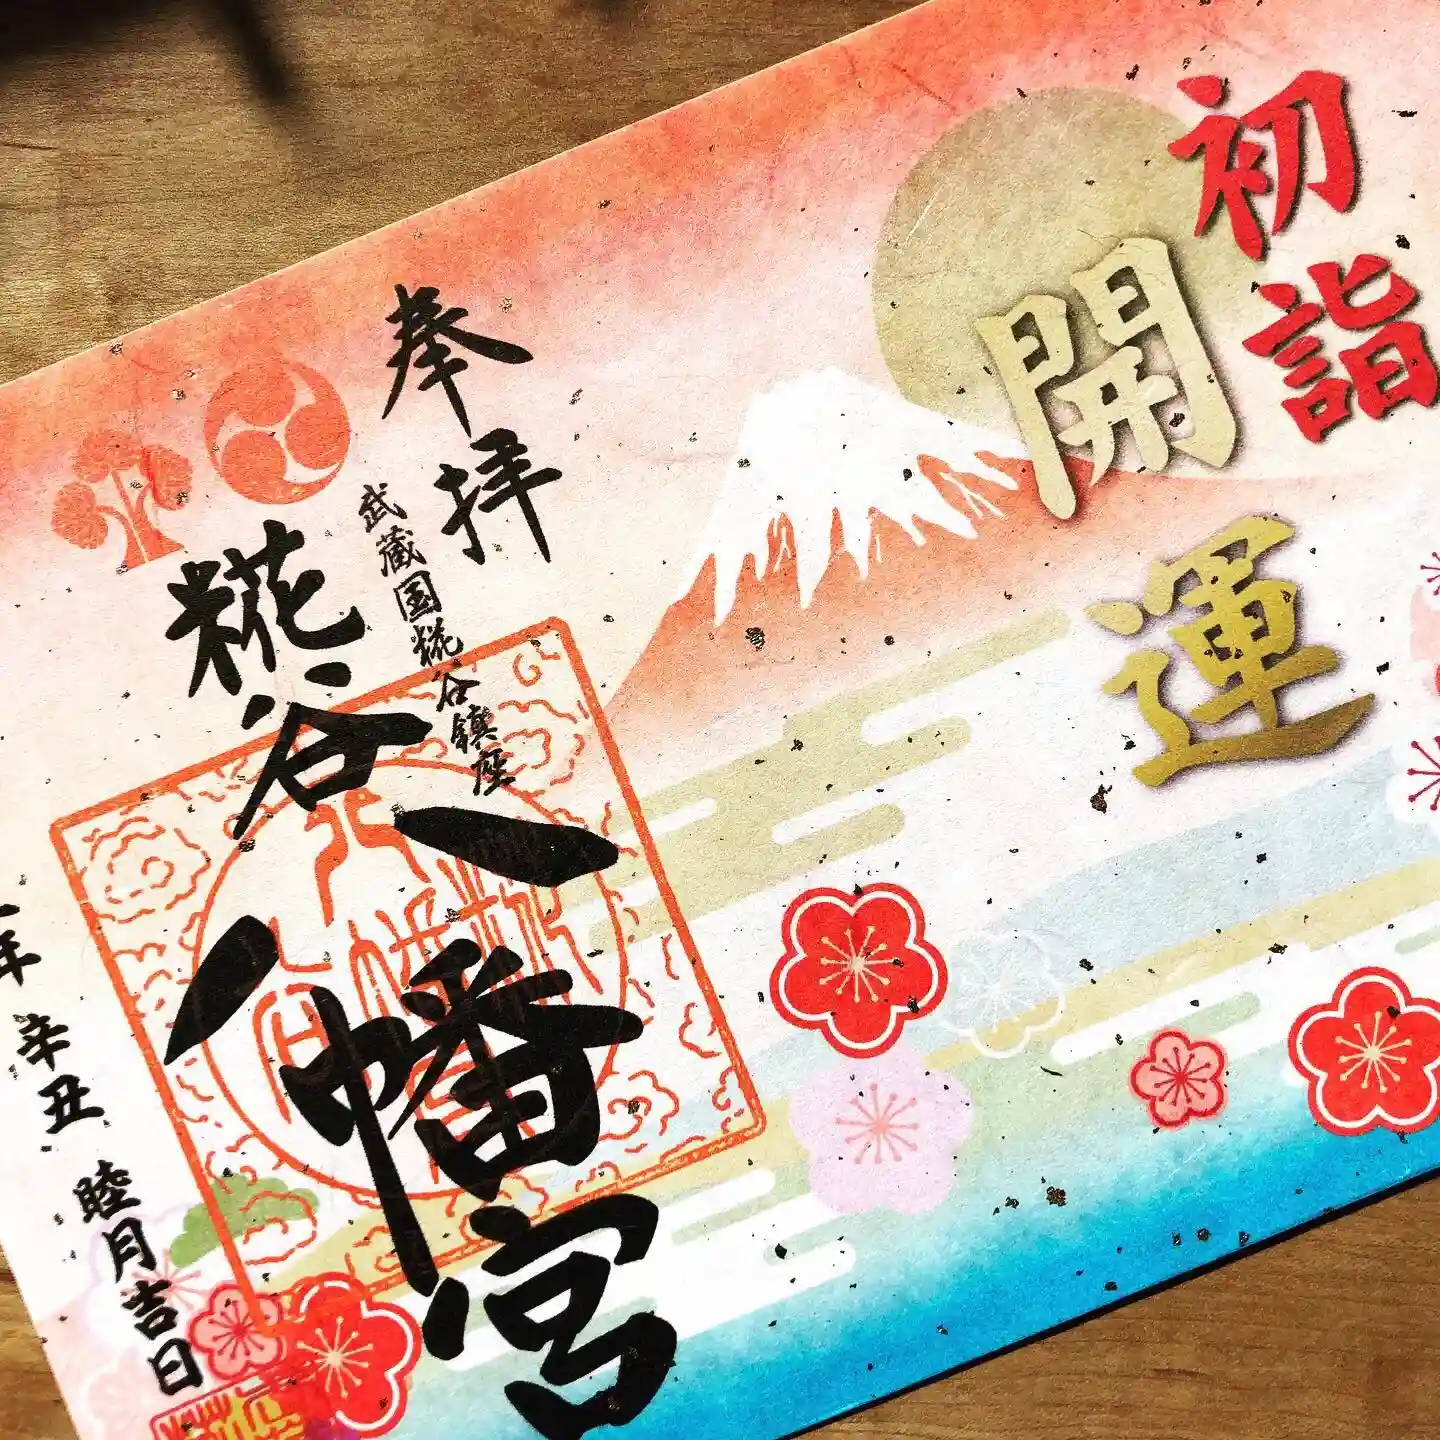 初詣
開運
奉拝
武蔵国糀谷鎮座
糀谷八幡宮
年 辛丑 睦月吉日